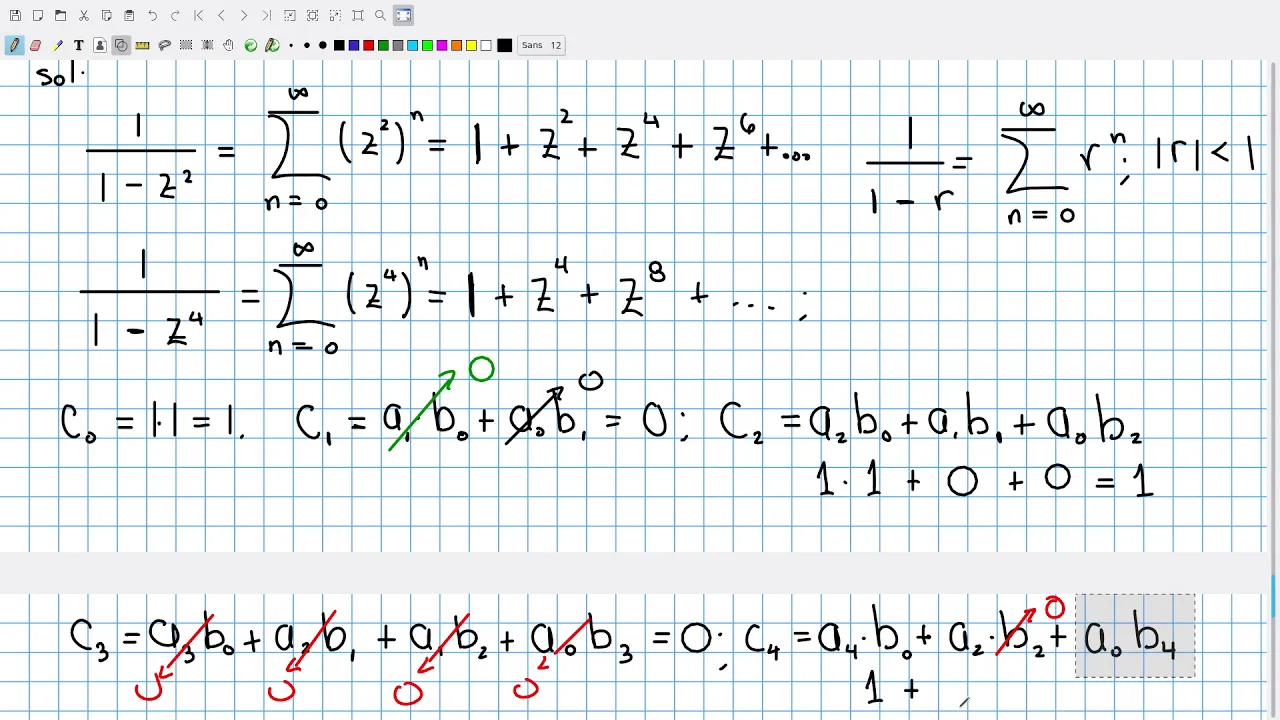 Sans 12
sol.
1/(1 - z²) = ∑_{n=0}^{∞} (z²)ⁿ = 1 + z² + z⁴ + z⁶ + ... 1/(1 - r) = ∑_{n=0}^{∞} rⁿ; |r| < 1
1/(1 - z⁴) = ∑_{n=0}^{∞} (z⁴)ⁿ = 1 + z⁴ + z⁸ + ....;
0 0
C₀ = 1·1 = 1. C₁ = a₁·b₀ + a₀b₁ = 0; C₂ = a₂b₀ + a₁b₁ + a₀b₂
1·1 + 0 + 0 = 1
0
C₃ = a₃b₀ + a₂b₁ + a₁b₂ + a₀b₃ = 0; C₄ = a₄·b₀ + a₂·b₂ + a₀b₄
0 0 0 0 1 +